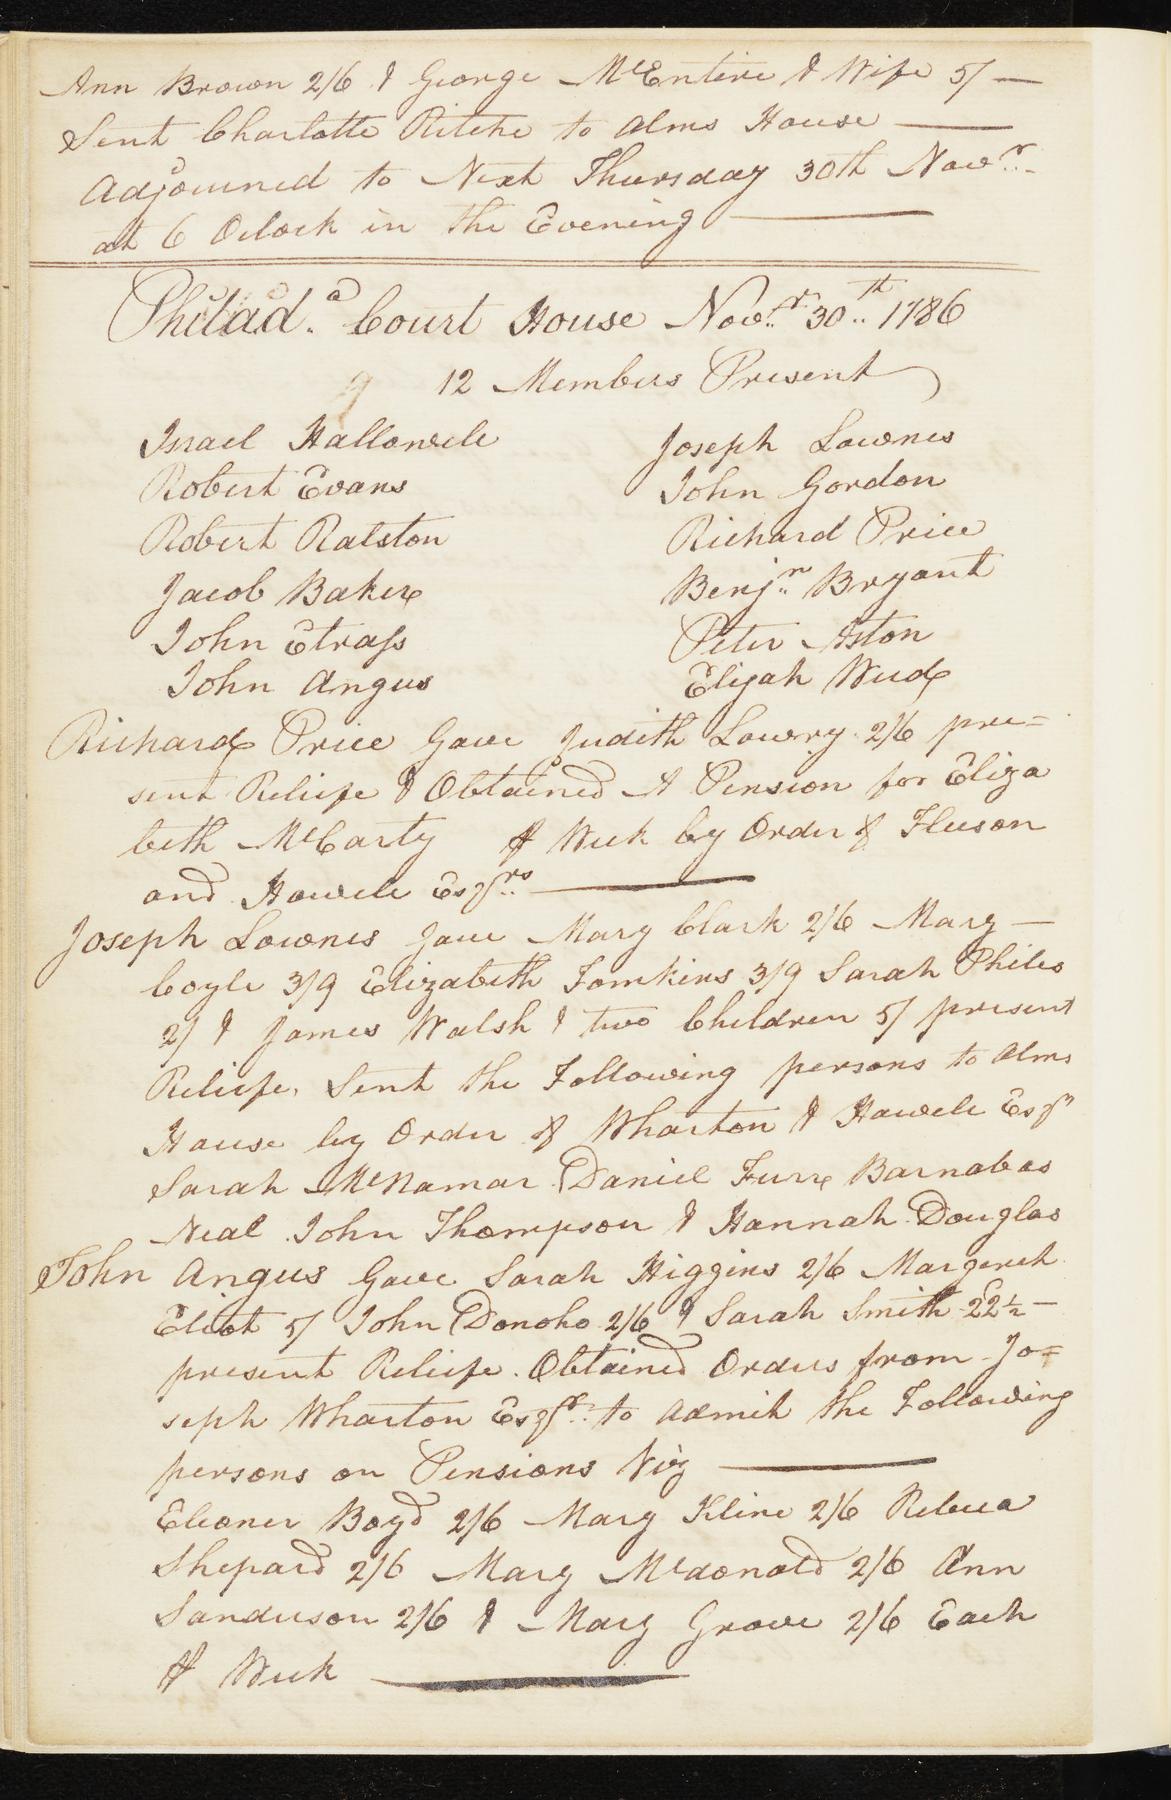 Ann Brown 2/6 & George McEntire & Wife 5/ —
Sent Charlotte Ritche to Alms House —
Adjourned to Next Thursday 30th Novr.
at 6 Oclock in the Evening —
Philada. Court House Novr. 30th 1786
12 Members Present
Israel Hallowele
Joseph Lownes
Robert Evans
John Gordon
Robert Ralston
Richard Price
Jacob Baker
Benjn. Bryant
John Strass
Peter Aston
John Angus
Elijah Weed
Richard Price Gave Judith Lowry 2/6 pre=
sent Reliefe & Obtained A Pension for Eliza
beth McCarty ⅌ Week by Order of
and Howele Esqrs. —
Joseph Lownes gave Mary Clark 2/6 Mary —
Coyle 3/9 Elizabeth Tomkins 3/9 Sarah Philes
2/ & James Walsh & two Children 5/ present
Reliefe, Sent the Following persons to Alms
House by Order of Wharton & Howele Esqr
Sarah McNamar Daniel Barnabas
Neal John Thompson & Hannah Douglas
John Angus Gave Sarah Higgins 2/6 Margaret
Eliot 5/ John Donoho 2/6 & Sarah Smith 22½ —
present Reliefe. Obtained Orders from Jo=
seph Wharton Esqr. to Admit the Following
persons on Pensions Viz —
Eleoner Boyd 2/6 Mary Kline 2/6 Rebeca
Shepard 2/6 Mary Mcdonald 2/6 Ann
Sanderson 2/6 & Mary Grove 2/6 Each
⅌ Week —